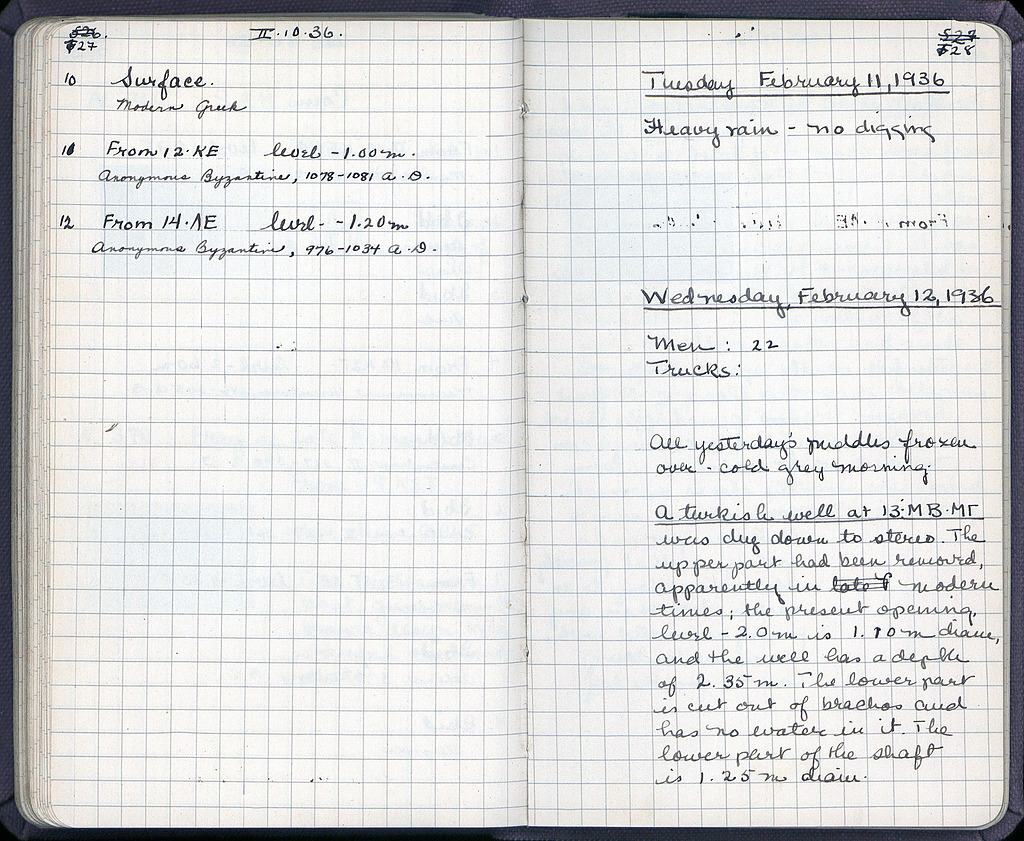 527
II·10·36.
10 Surface.
Modern Greek
10 From 12·KE level -1.00m.
Anonymous Byzantine, 1078-1081 A.D.
12 From 14·ΛE level- -1.20m
Anonymous Byzantine, 976-1034 A.D.
528
Tuesday February 11, 1936
Heavy rain - no digging
Wednesday, February 12, 1936
Men: 22
Trucks:
All yesterday's puddles frozen
over - cold grey morning.
A turkish well at 13:MB·MΓ
was dug down to stereo. The
upper part had been removed,
apparently in late modern
times; the present opening,
level -2.0m is 1.10m diam,
and the well has a depth
of 2.35m. The lower part
is cut out of brachos and
has no water in it. The
lower part of the shaft
is 1.25m diam.